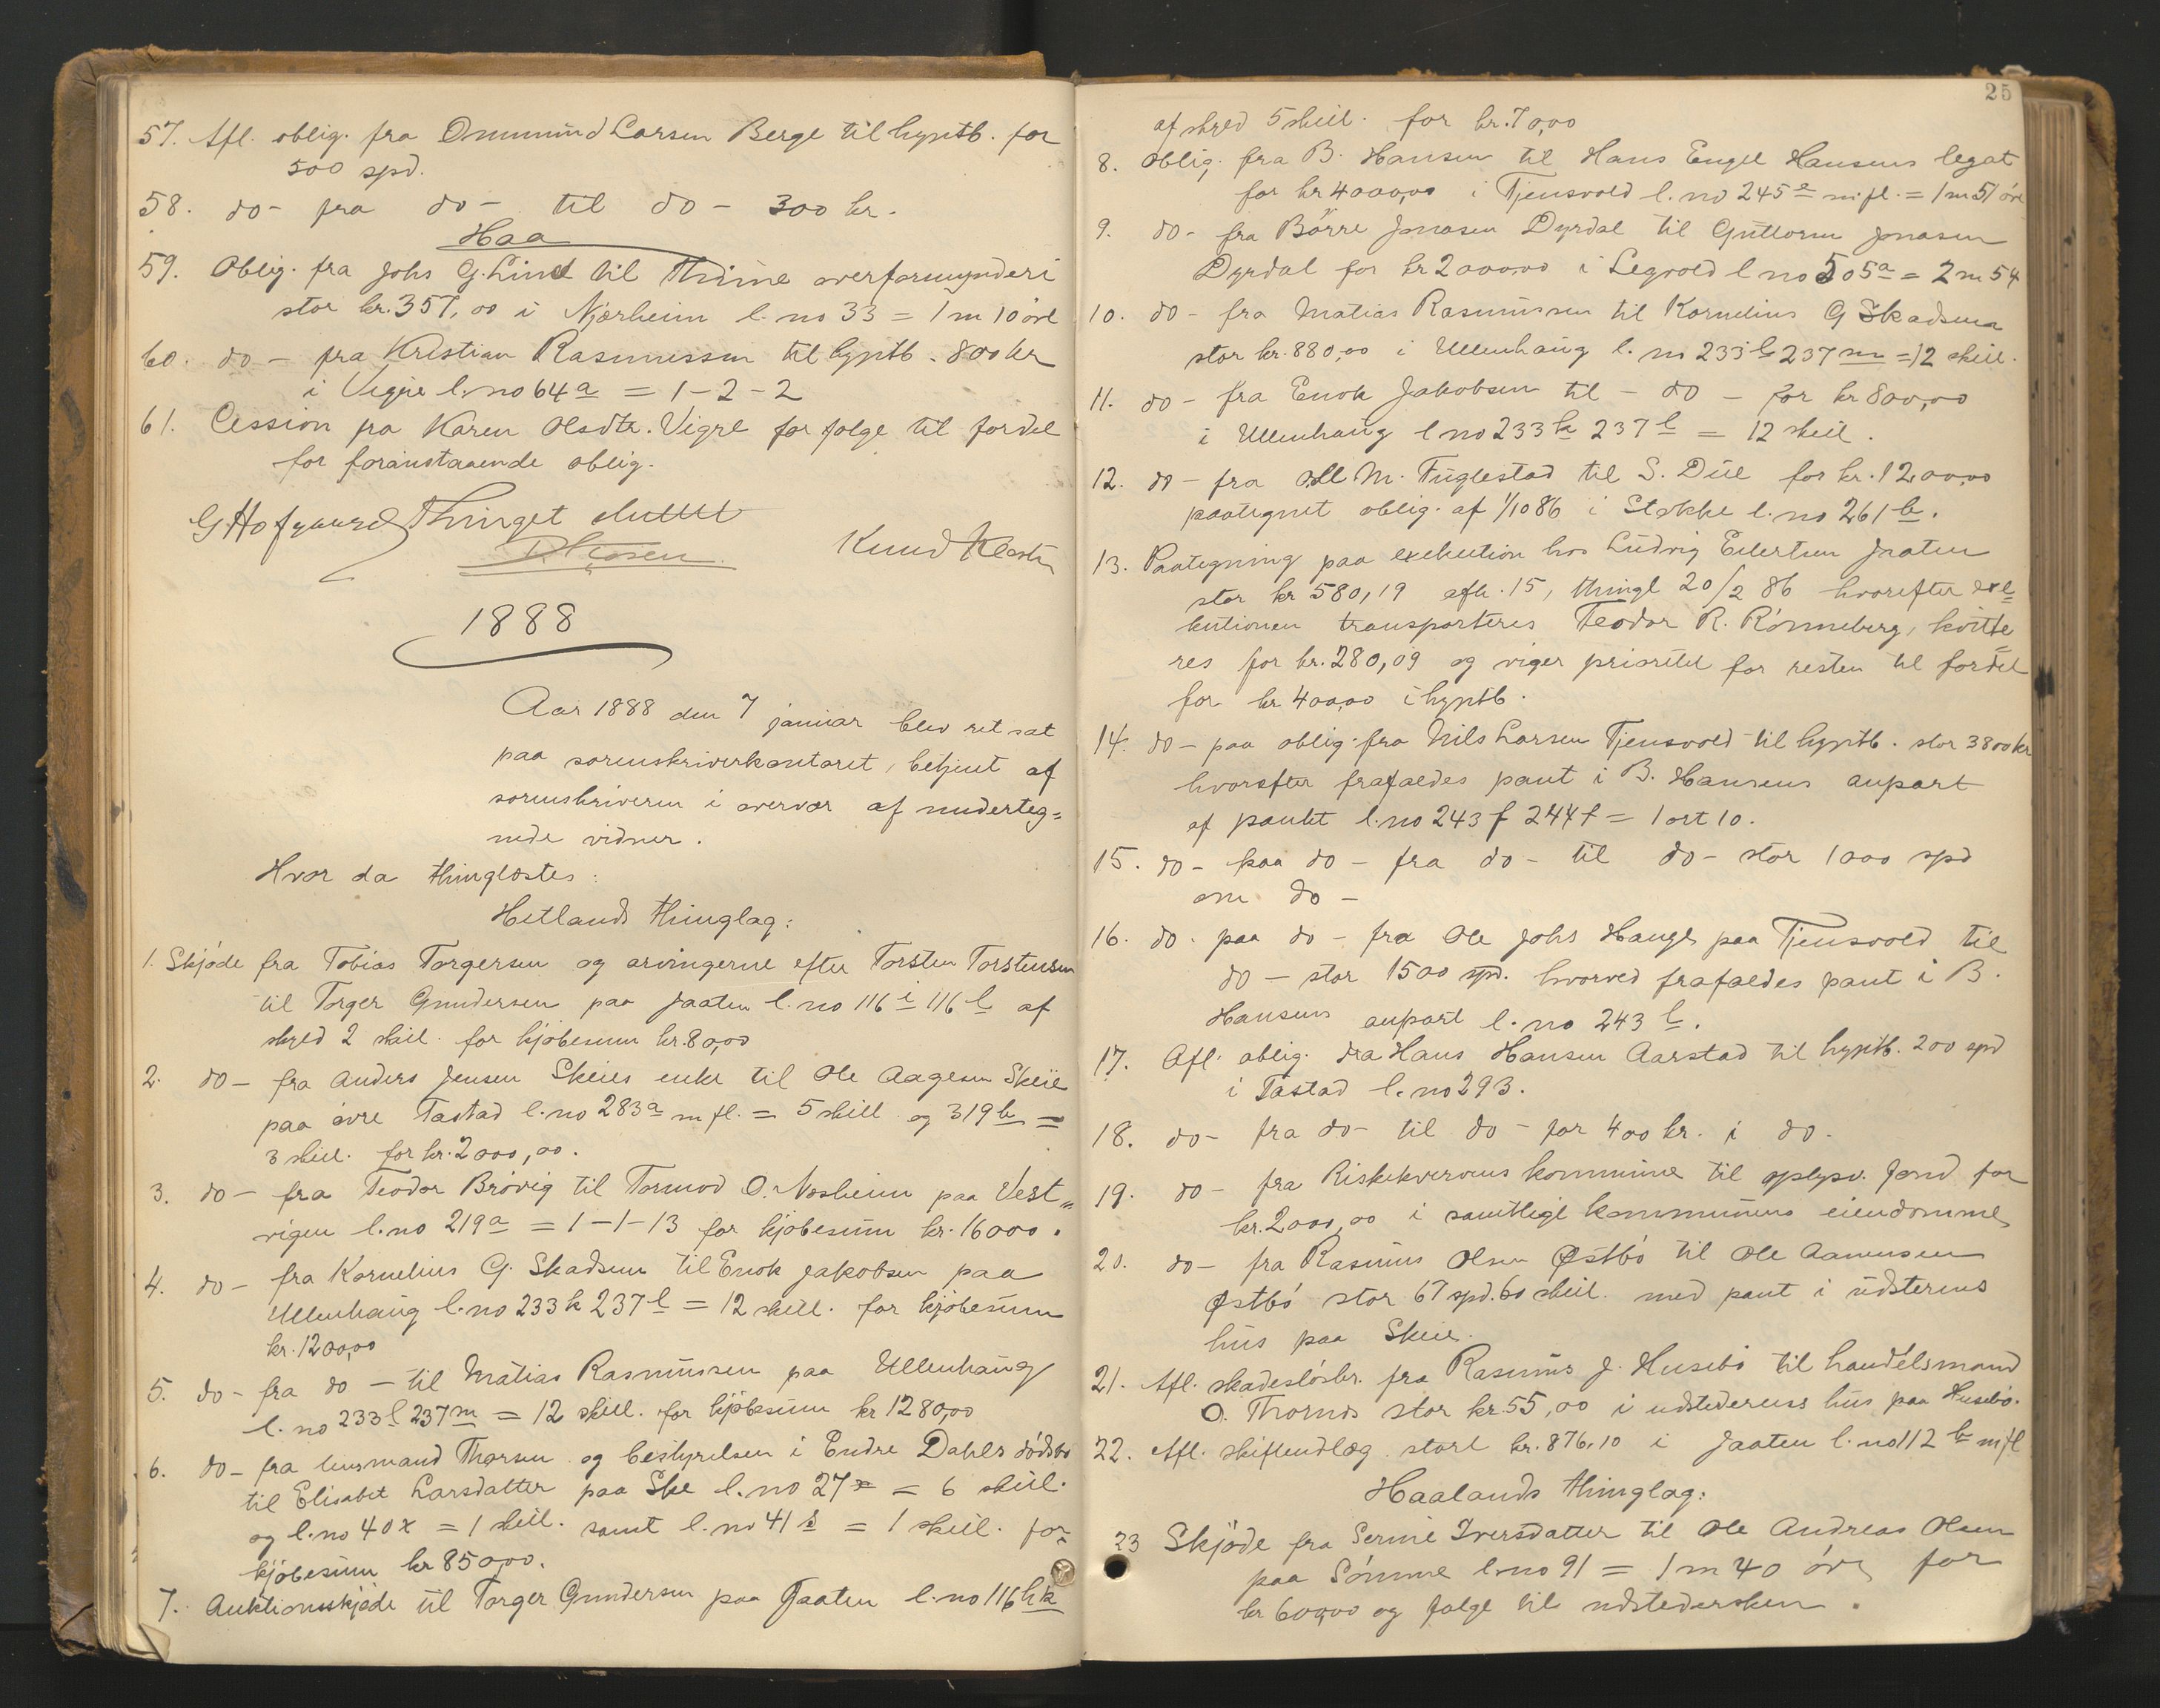 57. Afl. oblig. fra Ommund Larsen Berge til hyptb. for
500 spd.
58. do - fra do - til do - 300 kr.
Haa
59. Oblig. fra Johs G. Lind til Thime overformynderi
stor kr. 357,00 i Njærheim l. no 33 = 1 m 10 øre
60. do - fra Kristian Rasmussen til hyptb. 800 kr
i Vigre l. no 64 a = 1-2-2
61. Cession fra Karen Olsdtr. Vigre for følge til fordel
for foranstaaende oblig.
Thinget sluttet
G. Hofgaard Knud
1888
Aar 1888 den 7 januar blev ret sat
paa sorenskriverkontoret, betjent af
sorenskriveren i overvær af underteg=
nede vidner.
Hvor da thinglæstes:
Hetlands thinglag:
1. Skjøde fra Tobias Torgersen og arvingerne efter Torsten Torstensen
til Torger Gundersen paa Jaaten l. no 116 i 116 l af
skyld 2 skill. for kjøbesum kr. 80,00
2. do - fra Anders Jensen Skeies enke til Ole Aagesen Skeie
paa øvre Tastad l. no 283 a m fl. = 5 skill og 319 b =
3 skill. for kr. 2000,00.
3. do - fra Teodor Brøvig til Tormod O. Nesheim paa Vest=
vigen l. no 219 a = 1-1-13 for kjøbesum kr. 16000.
4. do - fra Kornelius G. Skadsem til Enok Jakobsen paa
Ullenhaug l. no 233 k 237 l = 12 skill. for kjøbesum
kr. 1200,00
5. do - fra do - til Matias Rasmussen paa Ullenhaug
l. no 233 l 237 m = 12 skill. for kjøbesum kr 1280,00
6. do - fra lensmand Thorsen og bestyrelsen i Endre Dahls dødsbo
til Elisabet Larsdatter paa Ske l. no 27 x = 6 skill.
og l. no 40 x = 1 skill. samt l. no 41 s = 1 skill. for
kjøbesum kr 850,00.
7. Auktionsskjøde til Torger Gundersen paa Jaaten l. no 116 h k
25
af skyld 5 skill. for kr. 70,00
8. Oblig. fra B. Hansen til Hans Engel Hansens legat
for kr 4000,00 i Tjensvold l. no 245 e m. fl. = 1 m 51 øre
9. do - fra Børre Jonasen Dyrdal til Guttorm Jonasen
Dyrdal for kr 2000,00 i Legvold l no 505 a = 2 m 54
10. do - fra Matias Rasmussen til Kornelius G Skadsem
stor kr. 880,00 i Ullenhaug l. no 233 l 237 m = 12 skill.
11. do - fra Enok Jakobsen til - do - for kr 800,00
i Ullenhaug l no 233 k 237 l = 12 skill.
12. do - fra M. Fuglestad til S. Due for kr. 1200,00
paategnet oblig. af 1/10 86 i Stokke l. no 261 b.
13. Paategning paa exekution hos Ludvig Eilertsen Jaaten
stor kr 580,19 afh. 15, thingl 20/2 86 hvorefter exe=
kutionen transporteres Teodor R. Rønneberg, kvitte
res for kr. 280,09 og viger prioritet for resten til fordel
for kr 400,00 i hyptb.
14. do - paa oblig. fra Nils Larsen Tjensvold til hyptb. stor 3800 kr
hvorefter frafaldes pant i B. Hansens anpart
af pantet l. no 243 f 244 f = 1 ort 10.
15. do - paa do - fra do - til do - stor 1000 spd
om do -
16. do. paa do - fra Ole Johs Hauge paa Tjensvold til
do - stor 1500 spd. hvorved frafaldes pant i B.
Hansens anpart l. no 243 l.
17. Afl. oblig. fra Hans Hansen Aarstad til hyptb. 200 spd
i Tastad l. no 293.
18. do - fra do - til do - for 400 kr. i do.
19. do - fra Riskekvervens kommune til oplysn. fond for
kr. 2000,00 i samtlige kommunens eiendomme
20. do - fra Rasmus Olsen Østbø til Ole Aamensen
Østbø stor 67 spd. 60 skill. med pant i udsterens
hus paa Skeie.
21. Afl. skadesløsbr. fra Rasmus J. Husebø til handelsmand
O. Thornds stor kr. 55,00 i udstederens hus paa Husebø.
22. Afl. skifteudlæg stort kr. 876.10 i Jaaten l. no 112 b m fl
Haalands thinglag:
23 Skjøde fra Serine Iversdatter til Ole Andreas Olsen
paa Sømme l. no 91 = 1 m 40 øre for
kr 600,00 og følge til udstedersken.